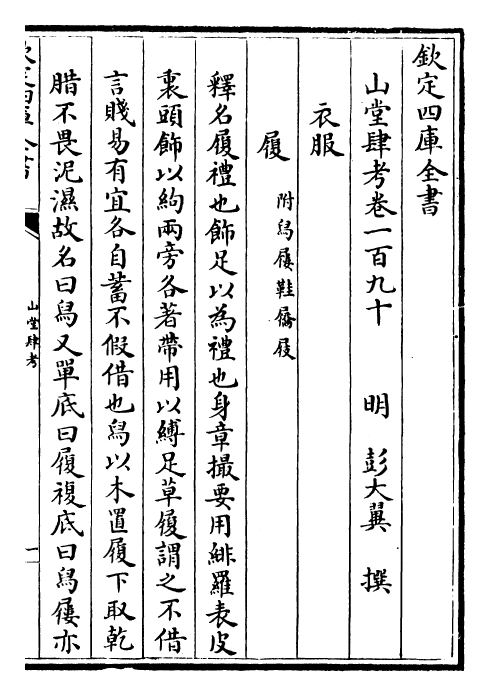 欽定四庫全書
山堂肆考卷一百九十　明　彭大翼　撰
衣服
履　附舄屨鞋屩屐
釋名履禮也飾足以為禮也身章撮要用緋羅表皮
裏頭飾以絇兩旁各著帶用以縛足草履謂之不借
言賤易有宜各自蓄不假借也舄以木置履下取乾
腊不畏泥濕故名曰舄又單底曰履複底曰舄屨亦
欽定四庫全書
山堂肆考
一